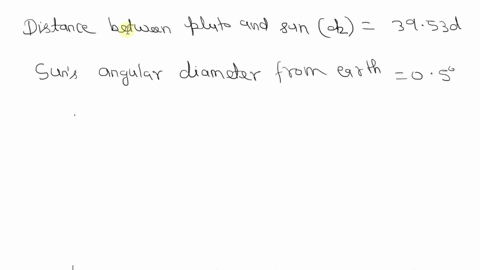 Distance between pluto and sun (d2) = 39.53d
Sun's angular diameter from earth = 0.5°